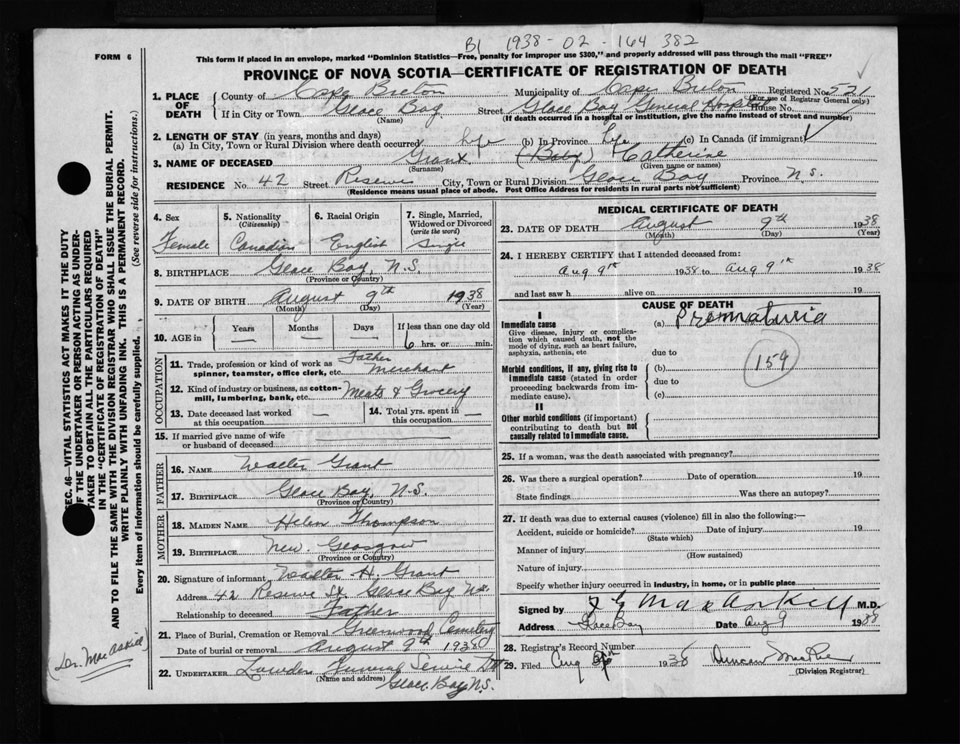 B1 1938-02-164382
FORM 6
This form if placed in an envelope, marked "Dominion Statistics—Free, penalty for improper use $300," and properly addressed will pass through the mail "FREE"
PROVINCE OF NOVA SCOTIA—CERTIFICATE OF REGISTRATION OF DEATH
1. PLACE OF DEATH
County of Cape Breton Municipality of Cape Breton Registered No. 521
(For use of Registrar General only)
If in City or Town Glace Bay Street Glace Bay General Hospital House No.
(Name) (If death occurred in a hospital or institution, give the name instead of street and number)
2. LENGTH OF STAY (in years, months and days)
(a) In City, Town or Rural Division where death occurred life (b) In Province life (c) In Canada (if immigrant)
3. NAME OF DECEASED Grant (Baby) Catherine
(Surname) (Given name or names)
RESIDENCE No. 42 Street Reserve City, Town or Rural Division Glace Bay Province N.S.
(Residence means usual place of abode. Post Office Address for residents in rural parts not sufficient)
4. Sex Female
5. Nationality (Citizenship) Canadian
6. Racial Origin English
7. Single, Married, Widowed or Divorced (write the word) Single
8. BIRTHPLACE Glace Bay, N.S.
(Province or Country)
9. DATE OF BIRTH August 9th 1938
(Month) (Day) (Year)
10. AGE in Years Months Days If less than one day old
6 hrs. or min.
OCCUPATION
11. Trade, profession or kind of work as spinner, teamster, office clerk, etc. Father Merchant
12. Kind of industry or business, as cotton-mill, lumbering, bank, etc. Meats & Grocery
13. Date deceased last worked at this occupation —
14. Total yrs. spent in this occupation —
15. If married give name of wife or husband of deceased
FATHER
16. NAME Walter Grant
17. BIRTHPLACE Glace Bay, N.S.
(Province or Country)
MOTHER
18. MAIDEN NAME Helen Thompson
19. BIRTHPLACE New Glasgow
(Province or Country)
20. Signature of informant Walter H. Grant
Address 42 Reserve St. Glace Bay N.S.
Relationship to deceased Father
21. Place of Burial, Cremation or Removal Greenwood Cemetery
Date of burial or removal August 9th 1938
22. UNDERTAKER Funeral Service
(Name and address)
Glace Bay N.S.
MEDICAL CERTIFICATE OF DEATH
23. DATE OF DEATH August 9th 1938
(Month) (Day) (Year)
24. I HEREBY CERTIFY that I attended deceased from:
Aug 9th 1938 to Aug 9th 1938
and last saw h alive on 19
CAUSE OF DEATH
I
Immediate cause
Give disease, injury or complication which caused death, not the mode of dying, such as heart failure, asphyxia, asthenia, etc
(a) Prematuria
due to
159
Morbid conditions, if any, giving rise to immediate cause (stated in order proceeding backwards from immediate cause).
(b)
due to
(c)
II
Other morbid conditions (if important) contributing to death but not causally related to immediate cause.
25. If a woman, was the death associated with pregnancy?
26. Was there a surgical operation? Date of operation 19
State findings Was there an autopsy?
27. If death was due to external causes (violence) fill in also the following:—
Accident, suicide or homicide? Date of injury 19
(State which)
Manner of injury
(How sustained)
Nature of injury
Specify whether injury occurred in industry, in home, or in public place
Signed by M.D.
Address Glace Bay Date Aug 9 1938
28. Registrar's Record Number
29. Filed Aug 1938 Duncan
(Division Registrar)
SEC. 46—VITAL STATISTICS ACT MAKES IT THE DUTY
OF THE UNDERTAKER OR PERSON ACTING AS UNDER-
TAKER TO OBTAIN ALL THE PARTICULARS REQUIRED
IN THE "CERTIFICATE OF REGISTRATION OF DEATH"
AND TO FILE THE SAME WITH THE DIVISION REGISTRAR WHO SHALL ISSUE THE BURIAL PERMIT.
WRITE PLAINLY WITH UNFADING INK. THIS IS A PERMANENT RECORD.
Every item of information should be carefully supplied. (See reverse side for instructions.)
(Dr. MacAskill)